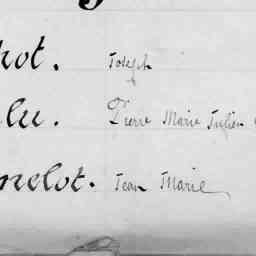 hot. Joseph
lu. Pierre Marie Julien
nelot. Jean Marie